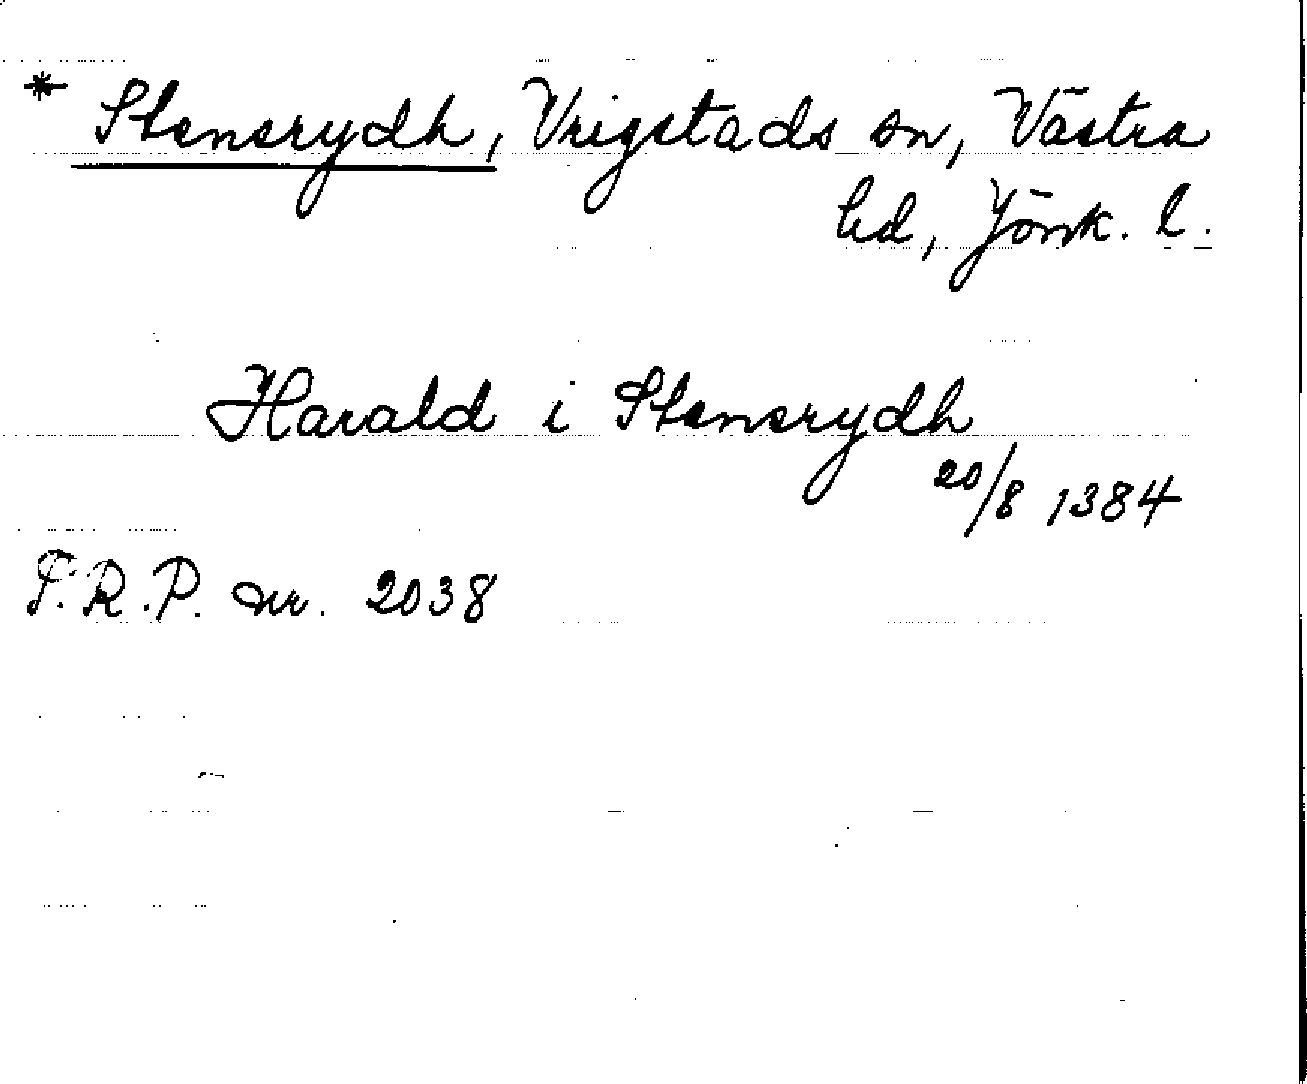 * Stensrydh, Vrigstads sn, Västra
hd, Jönk. l.
Harald i Stensrydh
20/8 1384
P.R.P. nr. 2038